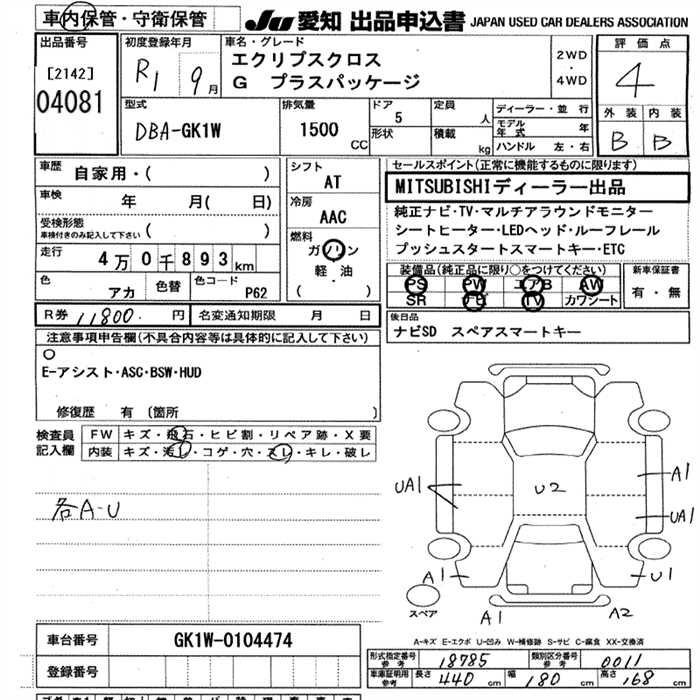 車内保管・守衛保管
JU 愛知 出品申込書 JAPAN USED CAR DEALERS ASSOCIATION
出品番号
[2142]
04081
初度登録年月
R1 9月
車名・グレード
エクリプスクロス
G プラスパッケージ
2WD
・
4WD
評価点
4
外装 内装
B B
型式
DBA-GK1W
排気量
1500 CC
ドア 5
形状
定員 人
積載 kg
ディーラー・並行
モデル年式 年
ハンドル 左・右
車歴
自家用・( )
車検
年 月( 日)
受検形態
車検付きのみ記入して下さい ( )
走行
4万0千893km
色
アカ
色替
色コード
P62
シフト
AT
冷房
AAC
燃料
ガソリン
軽・油
( )
セールスポイント(正常に機能するものに限ります)
MITSUBISHIディーラー出品
純正ナビ・TV・マルチアラウンドモニター
シートヒーター・LEDヘッド・ルーフレール
プッシュスタートスマートキー・ETC
装備品(純正品に限り○をつけてください)
PS PW エアB AW
SR ナビ TV カワシート
新車保証書
有・無
R券 11800.円
名変通知期限 月 日
後日品
ナビSD スペアスマートキー
注意事項申告欄(不具合内容等は具体的に記入して下さい)
○
E-アシスト・ASC・BSW・HUD
修復歴 有 (箇所 )
検査員記入欄
FW キズ・飛石・ヒビ割・リペア跡・X要
内装 キズ・汚れ・コゲ・穴・スレ・キレ・破レ
各A-U
UA1
U2
A1
UA1
A1
U1
スペア
A1
A2
A-キズ E-エクボ U-凹み W-補修跡 S-サビ C-腐食 XX-交換済
車台番号
GK1W-0104474
登録番号
形式指定番号 参考 18785
類別区分番号 参考 0011
車庫証明用 参考 長さ 440 cm 幅 180 cm 高さ 168 cm